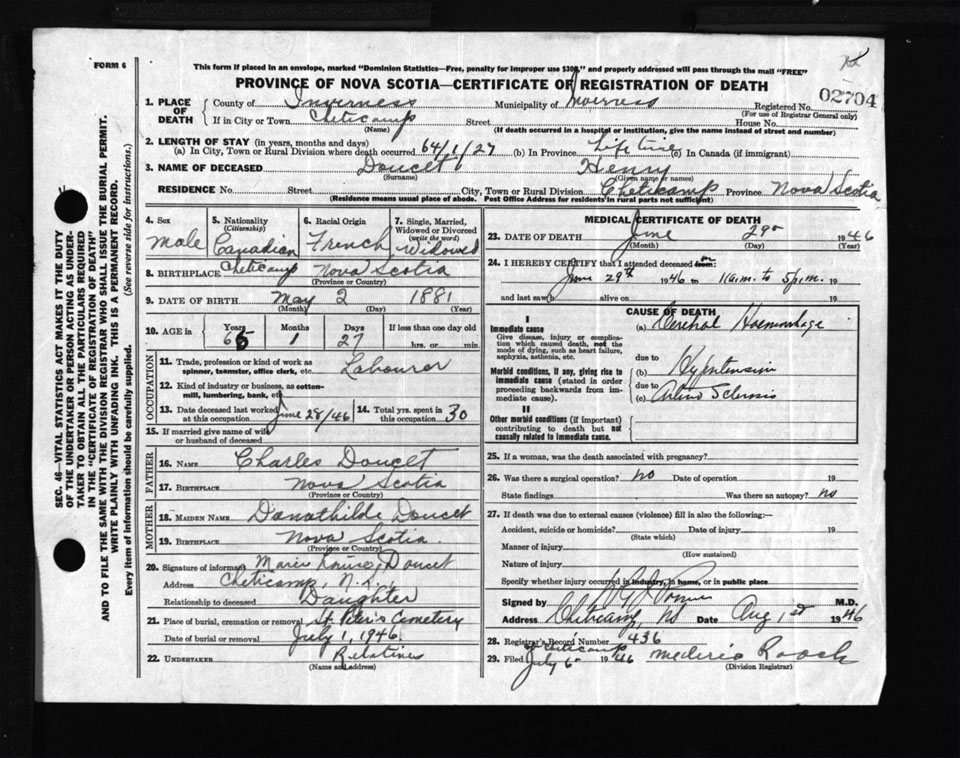 FORM 6
This form if placed in an envelope, marked "Dominion Statistics—Free, penalty for improper use $300," and properly addressed will pass through the mail "FREE"
PROVINCE OF NOVA SCOTIA—CERTIFICATE OF REGISTRATION OF DEATH
02704
1. PLACE OF DEATH
County of Inverness Municipality of Inverness Registered No.
(For use of Registrar General only)
If in City or Town Cheticamp Street House No.
(Name) (If death occurred in a hospital or institution, give the name instead of street and number)
2. LENGTH OF STAY (in years, months and days)
(a) In City, Town or Rural Division where death occurred 64/1/27 (b) In Province Life time (c) In Canada (if immigrant)
3. NAME OF DECEASED Doucet Henry
(Surname) (Given name or names)
RESIDENCE No. Street City, Town or Rural Division Cheticamp Province Nova Scotia
(Residence means usual place of abode. Post Office Address for residents in rural parts not sufficient)
4. Sex
Male
5. Nationality
(Citizenship)
Canadian
6. Racial Origin
French
7. Single, Married, Widowed or Divorced
(write the word)
Widowed
8. BIRTHPLACE Cheticamp Nova Scotia
(Province or Country)
9. DATE OF BIRTH May 2 1881
(Month) (Day) (Year)
10. AGE in
Years 65
Months 1
Days 27
If less than one day old
hrs. or min.
OCCUPATION
11. Trade, profession or kind of work as spinner, teamster, office clerk, etc. Labourer
12. Kind of industry or business, as cotton-mill, lumbering, bank, etc.
13. Date deceased last worked at this occupation June 28/46
14. Total yrs. spent in this occupation 30
15. If married give name of wife or husband of deceased
FATHER
16. NAME Charles Doucet
17. BIRTHPLACE Nova Scotia
(Province or Country)
MOTHER
18. MAIDEN NAME Donathilde Doucet
19. BIRTHPLACE Nova Scotia
(Province or Country)
20. Signature of informant Marie Louise Doucet
Address Cheticamp, N.S.,
Relationship to deceased Daughter
21. Place of burial, cremation or removal St. Peter's Cemetery
Date of burial or removal July 1, 1946.
22. UNDERTAKER Relatives
(Name and address)
MEDICAL CERTIFICATE OF DEATH
23. DATE OF DEATH June 29 1946
(Month) (Day) (Year)
24. I HEREBY CERTIFY that I attended deceased on from:
June 29th 1946 to 11 a.m. to 5 p.m. 19
and last saw h alive on 19
CAUSE OF DEATH
I
Immediate cause
Give disease, injury or complication which caused death, not the mode of dying, such as heart failure, asphyxia, asthenia, etc.
(a) Cerebral Haemorrhage
due to
Morbid conditions, if any, giving rise to immediate cause (stated in order proceeding backwards from immediate cause).
(b) Hypertension
due to
(c) Arterio Sclerosis
II
Other morbid conditions (if important) contributing to death but not causally related to immediate cause.
25. If a woman, was the death associated with pregnancy?
26. Was there a surgical operation? No Date of operation 19
State findings Was there an autopsy? No
27. If death was due to external causes (violence) fill in also the following:—
Accident, suicide or homicide? Date of injury 19
(State which)
Manner of injury
(How sustained)
Nature of injury
Specify whether injury occurred in industry, in home, or in public place
Signed by M.D.
Address Cheticamp NS Date Aug 1st 1946
28. Registrar's Record Number 436
Cheticamp
29. Filed July 6 1946 Mederic Roach
(Division Registrar)
SEC. 46—VITAL STATISTICS ACT MAKES IT THE DUTY
OF THE UNDERTAKER OR PERSON ACTING AS UNDER-
TAKER TO OBTAIN ALL THE PARTICULARS REQUIRED
IN THE "CERTIFICATE OF REGISTRATION OF DEATH"
AND TO FILE THE SAME WITH THE DIVISION REGISTRAR WHO SHALL ISSUE THE BURIAL PERMIT.
WRITE PLAINLY WITH UNFADING INK. THIS IS A PERMANENT RECORD.
Every item of information should be carefully supplied. (See reverse side for instructions.)